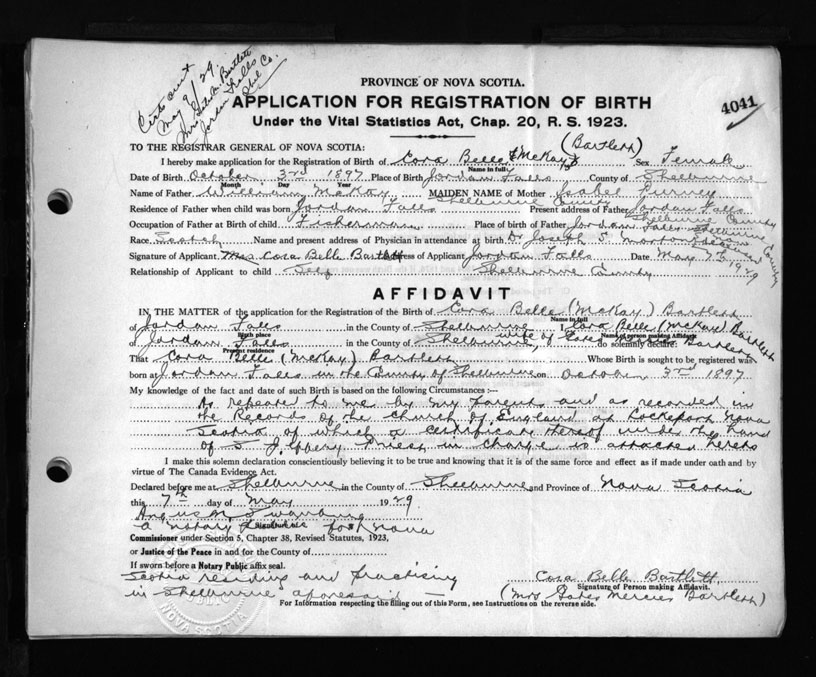 Cert out
May 9/29.
Jordan Falls
Shel. Co.
4041
PROVINCE OF NOVA SCOTIA.
APPLICATION FOR REGISTRATION OF BIRTH
Under the Vital Statistics Act, Chap. 20, R. S. 1923.
TO THE REGISTRAR GENERAL OF NOVA SCOTIA:
I hereby make application for the Registration of Birth of Cora Belle (McKay) (Bartlett) Sex Female
Name in full
Date of Birth October 3rd 1897 Place of Birth Jordan Falls County of Shelburne
Month Day Year
Name of Father William McKay MAIDEN NAME of Mother Isabel
Residence of Father when child was born Jordan Falls Shelburne County Present address of Father Jordan Falls Shelburne County
Occupation of Father at Birth of child Fisherman Place of birth of Father Jordan Falls Shelburne County
Race Scotch Name and present address of Physician in attendance at birth Dr Joseph S. Morton deceased
Signature of Applicant Mrs Cora Belle Bartlett Address of Applicant Jordan Falls Date May 7th 1929
Relationship of Applicant to child Self Shelburne County
AFFIDAVIT
IN THE MATTER of the application for the Registration of the Birth of Cora Belle (McKay) Bartlett
Name in full
of Jordan Falls in the County of Shelburne I Cora Belle (McKay) Bartlett
Birth place Name of person making Affidavit
of Jordan Falls in the County of Shelburne, wife of Bartlett do solemnly declare:
Present residence
That Cora Belle (McKay) Bartlett Whose Birth is sought to be registered was
born at Jordan Falls in the County of Shelburne on October 3rd 1897
My knowledge of the fact and date of such Birth is based on the following Circumstances :—
As repeated to me by my parents and as recorded in
the Records of the Church of England at Lockeport Nova
Scotia of which a certificate thereof under the hand
of Priest in charge is attached hereto
I make this solemn declaration conscientiously believing it to be true and knowing that it is of the same force and effect as if made under oath and by
virtue of The Canada Evidence Act.
Declared before me at Shelburne in the County of Shelburne and Province of Nova Scotia
this 7th day of May 1929
a Notary Public for Nova
Signature
Commissioner under Section 5, Chapter 38, Revised Statutes, 1923,
or Justice of the Peace in and for the County of
If sworn before a Notary Public affix seal.
Scotia residing and practising
in Shelburne aforesaid —
Cora Belle Bartlett
Signature of Person making Affidavit.
(Mrs Bartlett)
For Information respecting the filling out of this Form, see Instructions on the reverse side.
NOVA SCOTIA